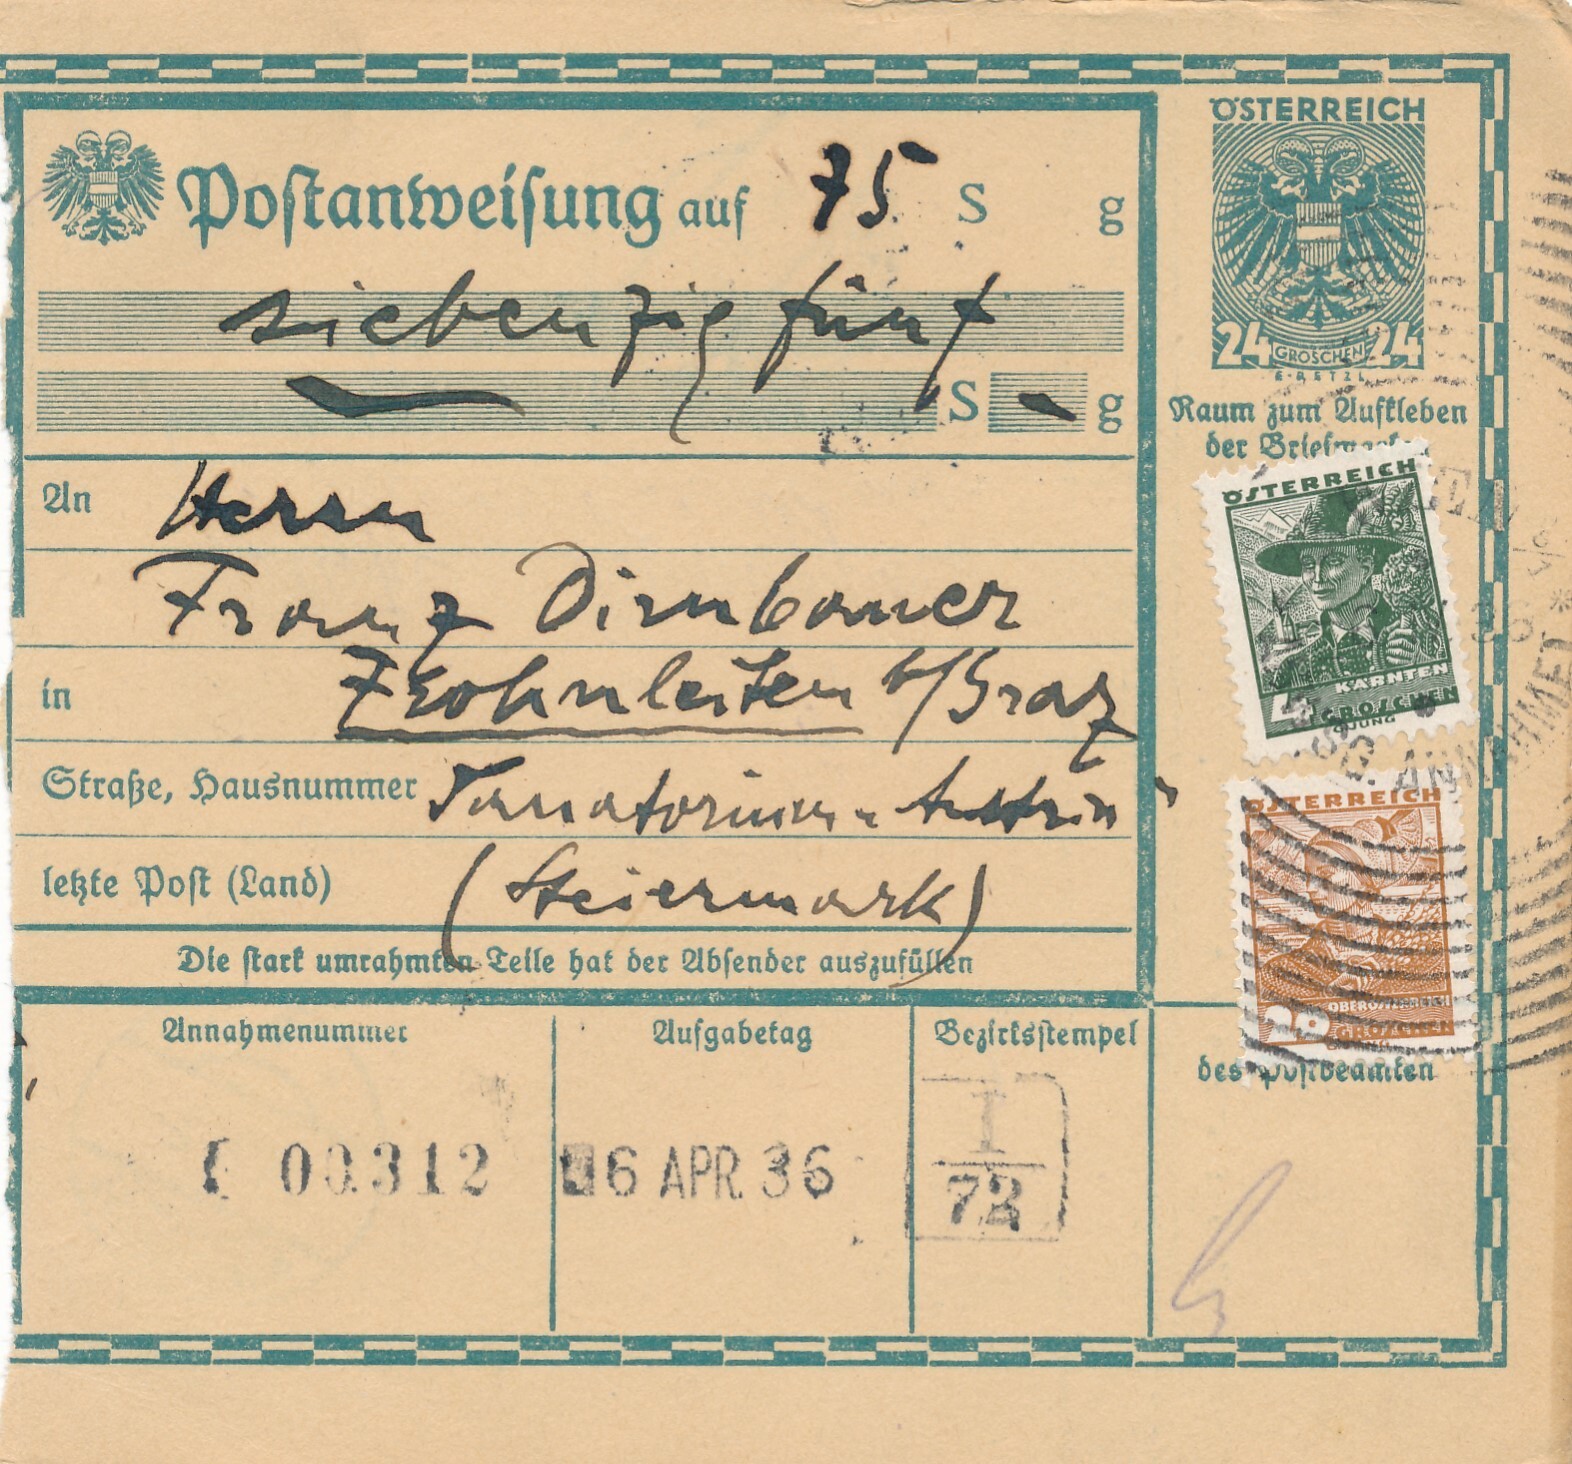 Postanweisung auf 75 S g
siebenzig fünf
S - g
An Herrn
Franz Dirnbauer
in Frohnleiten b/Graz
Straße, Hausnummer Sanatorium „Austria"
letzte Post (Land) (Steiermark)
Die stark umrahmten Teile hat der Absender auszufüllen
Annahmenummer
00312
Aufgabetag
6 APR. 36
Bezirksstempel
I
72
ÖSTERREICH
24 GROSCHEN 24
Raum zum Aufkleben
der Briefmarke
ÖSTERREICH
KÄRNTEN
4 GROSCHEN
ÖSTERREICH
OBERÖSTERREICH
20 GROSCHEN
des Postbeamten